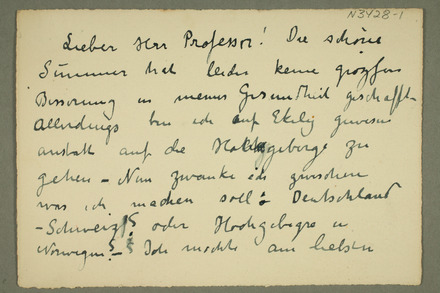 N3428-1
Lieber Herr Professor! Die schöne
Summer hat leider keine grozse
Besserung in meiner Gesundheit geschafft
Allerdings bin ich auf Ekelig gewesen
anstatt auf die Hochgebirge zu
gehen - Nun zwanke ich zwischen
was ich machen soll: Deutschland
- Schweiz!? oder Hochgebirge in
Norwegen? - Ich möchte am liebsten